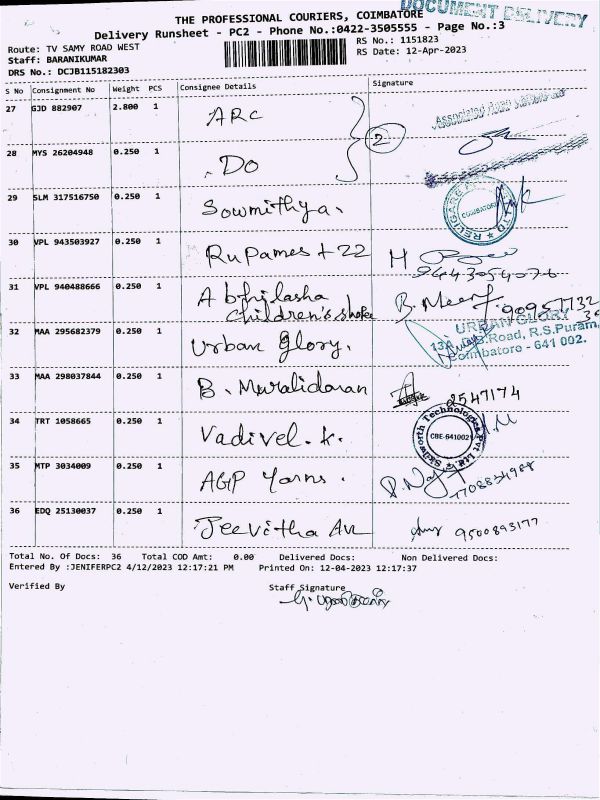 DOCUMENT DELIVERY
THE PROFESSIONAL COURIERS, COIMBATORE
Delivery Runsheet - PC2 - Phone No.:0422-3505555 - Page No.:3
Route: TV SAMY ROAD WEST
RS No.: 1151823
Staff: BARANIKUMAR
RS Date: 12-Apr-2023
DRS No.: DCJB115182303
S No Consignment No Weight PCS Consignee Details Signature
27 GJD 882907 2.800 1 ARC
2
28 MYS 26204948 0.250 1 Do
29 SLM 317516750 0.250 1 Sowmithya.
COIMBATORE
30 VPL 943503927 0.250 1 Rupames + 22
9643054076
31 VPL 940488666 0.250 1 Abhilasha
children's
32 MAA 295682379 0.250 1 Urban Glory.
URBAN GLORY
Road, R.S.Puram,
Coimbatore - 641 002.
33 MAA 298037844 0.250 1 B. Muralidaran 2547174
34 TRT 1058665 0.250 1 Vadivel. k.
Skilworth Technologies Pvt Ltd
CBE-641002
35 MTP 3034009 0.250 1 AGP Yarns.
36 EDQ 25130037 0.250 1 Jeevitha 9500893177
Total No. Of Docs: 36 Total COD Amt: 0.00 Delivered Docs: Non Delivered Docs:
Entered By :JENIFERPC2 4/12/2023 12:17:21 PM Printed On: 12-04-2023 12:17:37
Verified By Staff Signature